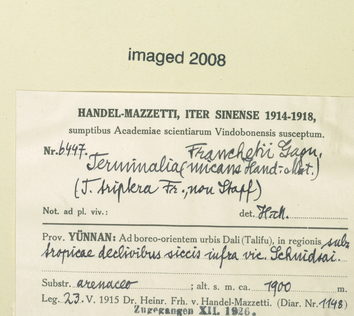 imaged 2008
HANDEL-MAZZETTI, ITER SINENSE 1914-1918,
sumptibus Academiae scientiarum Vindobonensis susceptum.
Nr. 6447. Franchetii Gagn.
Terminalia (micans Hand.-Mzt.)
(T. triptera Fr., non Stapf)
Not. ad pl. viv.: det. H.-M.
Prov. YÜNNAN: Ad boreo-orientem urbis Dali (Talifu), in regionis sub-
tropicae declivibus siccis infra vic. Schuidsai.
Substr. arenaceo ; alt. s. m. ca. 1900 m.
Leg. 23. V. 1915 Dr. Heinr. Frh. v. Handel-Mazzetti. (Diar. Nr. 1148)
Zugegangen XII. 1926.